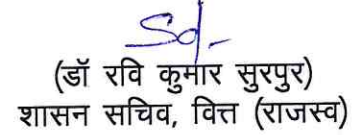 Sd/-
(डॉ रवि कुमार सुरपुर)
शासन सचिव, वित्त (राजस्व)